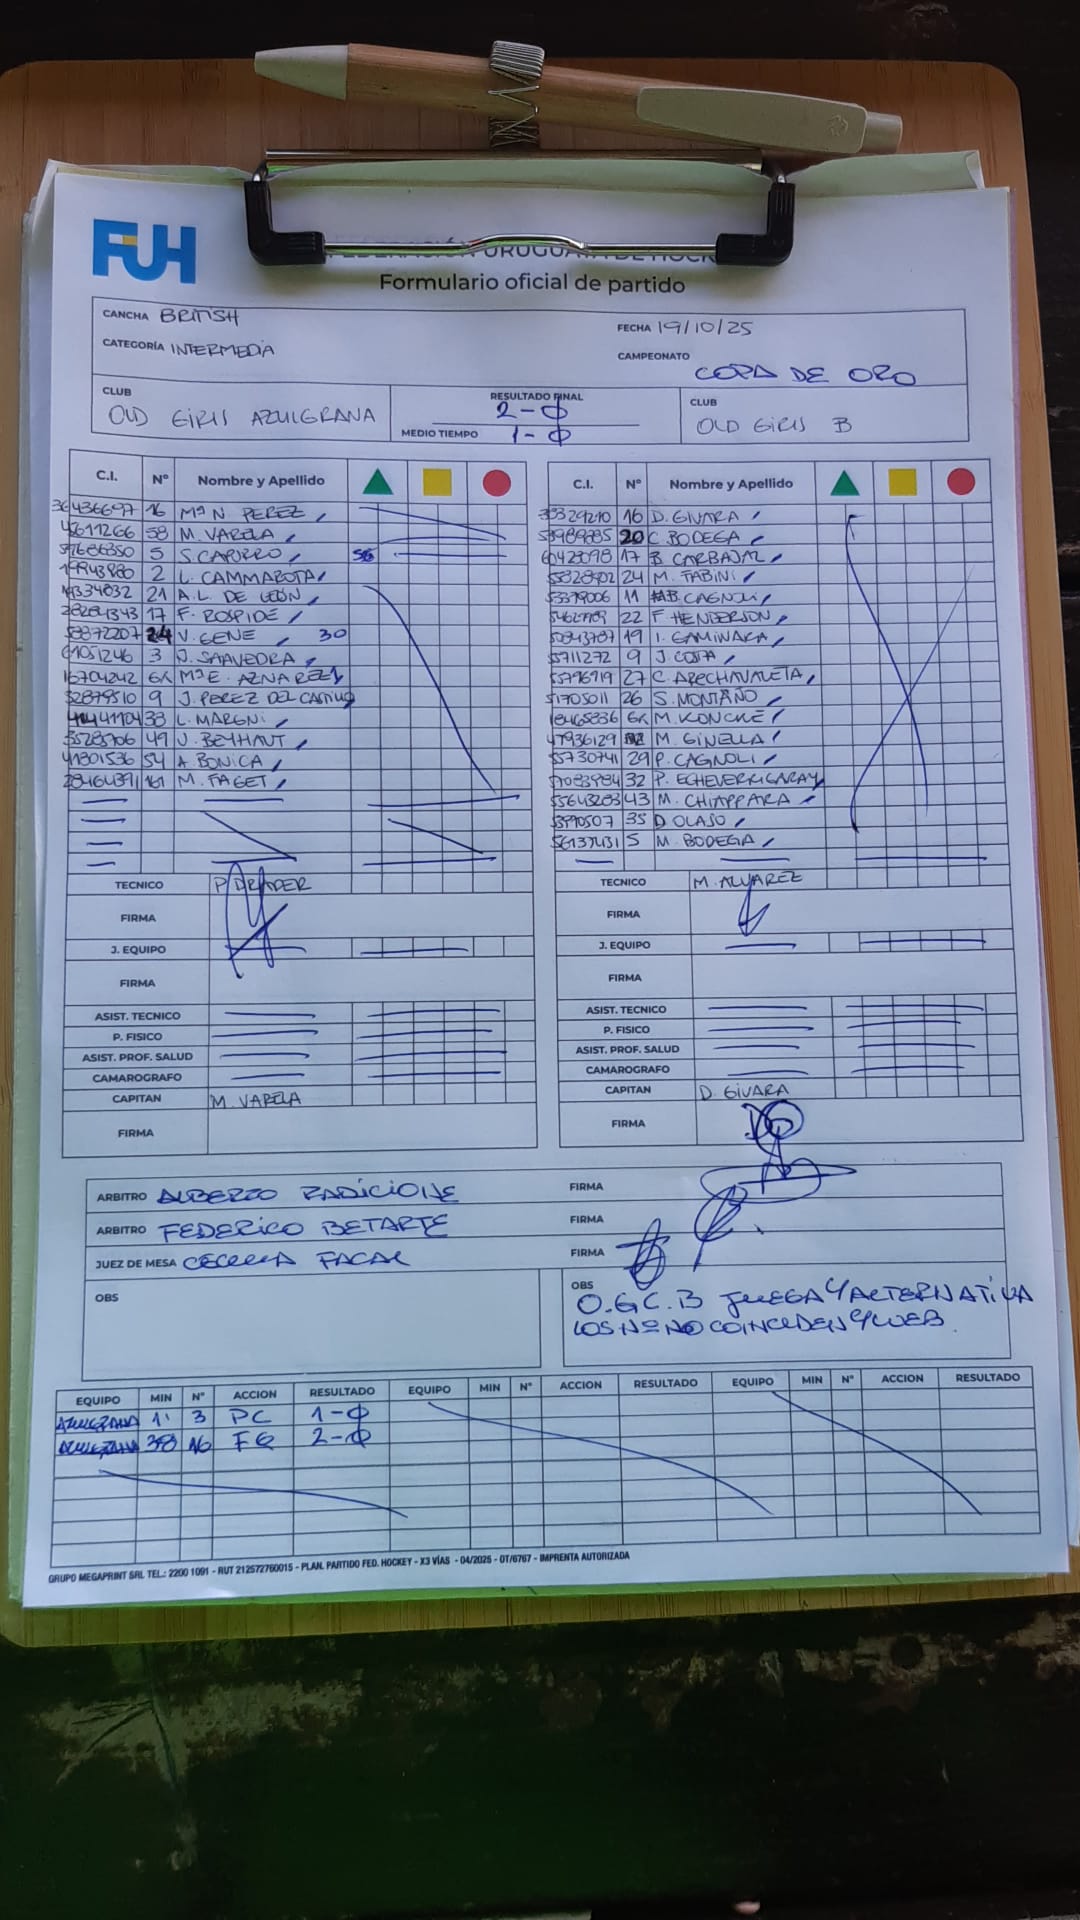 FUH
Formulario oficial de partido
CANCHA BRITISH
FECHA 19/10/25
CATEGORÍA INTERMEDIA
CAMPEONATO COPA DE ORO
CLUB OLD GIRLS AZULGRANA
RESULTADO FINAL 2-0
MEDIO TIEMPO 1-0
CLUB OLD GIRLS B
C.I. Nº Nombre y Apellido
36436697 16 Mª N. PEREZ
58 M. VARELA
5 S. CAPURRO 56
2 L. CAMMAROTA
21 A.L. DE LEÓN
17 F. ROSPIDE
58872207 24 V. GENE 30
3 J. SAAVEDRA
16704242 GK Mª E. AZNAREZ
52879510 9 J. PEREZ DEL CASTILLO
33 L. MARGNI
49 J. BEYHAUT
41301536 54 A. BONICA
28464391 161 M. PAGET
TECNICO P. DRAPER
FIRMA
J. EQUIPO
FIRMA
ASIST. TECNICO
P. FISICO
ASIST. PROF. SALUD
CAMAROGRAFO
CAPITAN M. VARELA
FIRMA
C.I. Nº Nombre y Apellido
16 D. GIVARA
20 C. BODEGA
60428098 17 B. CARBAJAL
24 M. FABINI
53379006 11 B. CAGNOLI
22 F. HENDERSON
19 I. GAMINARA
55711272 9 J. COSTA
55796919 27 C. ARECHAVALETA
51705011 26 S. MONTAÑO
18465836 GK M. KONCKE
47936129 M. GINELLA
55730741 29 P. CAGNOLI
57083984 32 P. ECHEVERRIGARAY
55643283 43 M. CHIAPPARA
35 D. OLASO
56137431 5 M. BODEGA
TECNICO M. ALVAREZ
FIRMA
J. EQUIPO
FIRMA
ASIST. TECNICO
P. FISICO
ASIST. PROF. SALUD
CAMAROGRAFO
CAPITAN D. GIVARA
FIRMA
ARBITRO ALBERTO RADICIONE FIRMA
ARBITRO FEDERICO BETARTE FIRMA
JUEZ DE MESA CECILIA FACAL FIRMA
OBS
OBS
O.G.C.B JUEGA C/ALTERNATIVA
LOS Nº NO COINCIDEN C/WEB.
EQUIPO MIN Nº ACCION RESULTADO EQUIPO MIN Nº ACCION RESULTADO EQUIPO MIN Nº ACCION RESULTADO
AZULGRANA 1' 3 PC 1-0
AZULGRANA 38 16 FG 2-0
GRUPO MEGAPRINT SRL TEL.: 2200 1091 - RUT 212572760015 - PLAN. PARTIDO FED. HOCKEY - X3 VÍAS - 04/2025 - OT/6767 - IMPRENTA AUTORIZADA